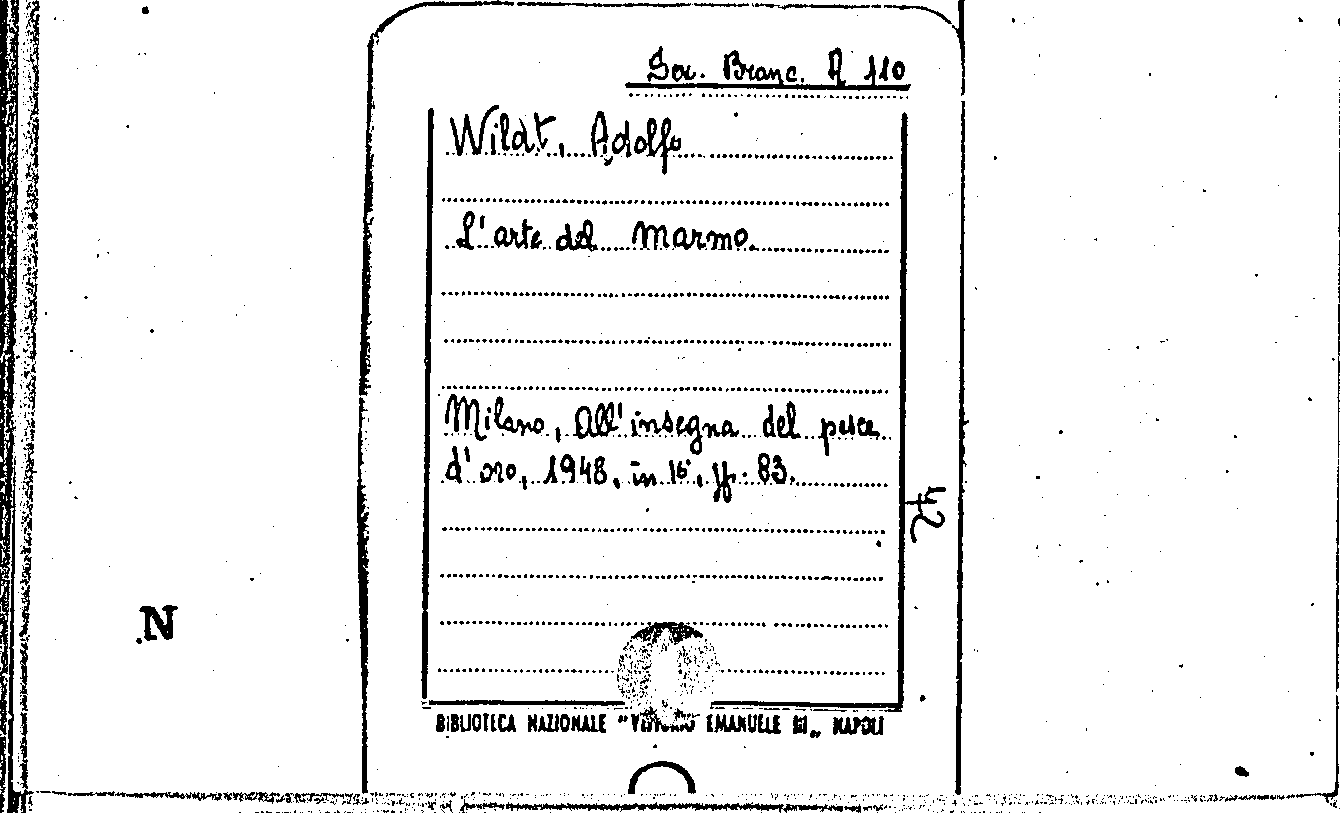 Sez. Branc. A 110
Wildt, Adolfo
L'arte del marmo.
Milano, All'insegna del pesce
d'oro, 1948, in 16°, pp. 83.
42
N
BIBLIOTECA NAZIONALE "VITTORIO EMANUELE III„ NAPOLI